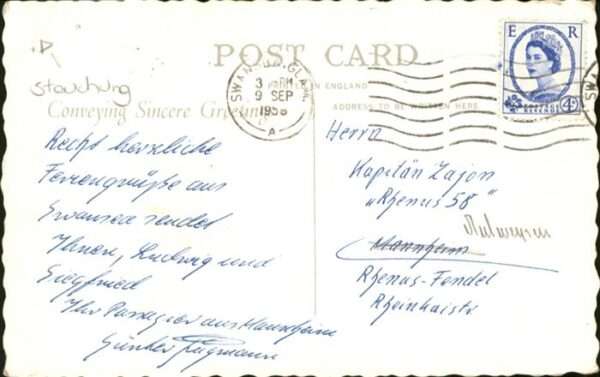 POST CARD
PRINTED IN ENGLAND
Conveying Sincere Greetings
ADDRESS TO BE WRITTEN HERE
SWANSEA, GLAM.
3 PM
9 SEP
1958
A
E R
4D
POSTAGE
REVENUE
Recht herzliche
Feriengrüße aus
Swansea sendet
Ihnen, Ludwig und
Siegfried
Ihr Passagier aus Mannheim
Günther
Herrn
Kapitän Zajon
„Rhenus 58"
Antwerpen
Mannheim
Rhenus-Fendel